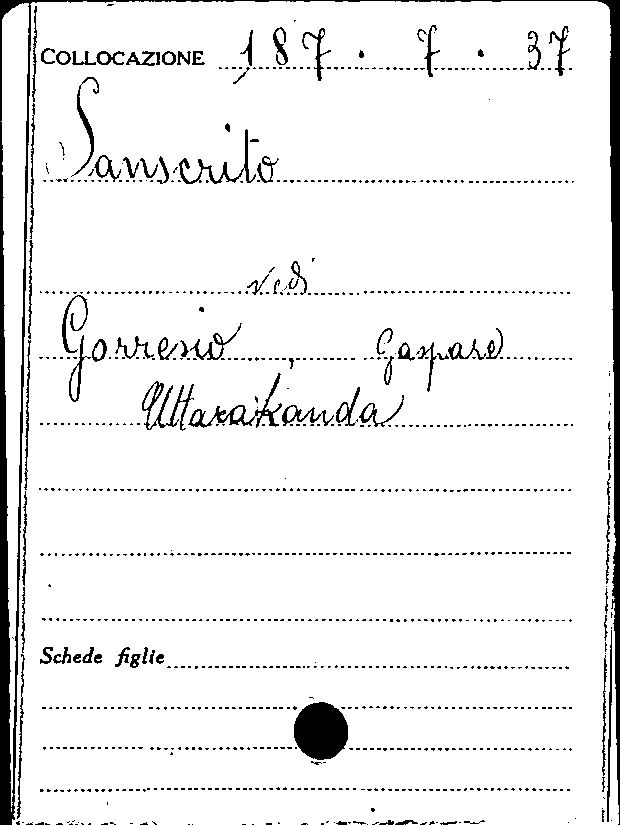 COLLOCAZIONE 187 . 7 . 37
Sanscrito
vedi
Gorresio, Gaspare
Uttarakanda
Schede figlie